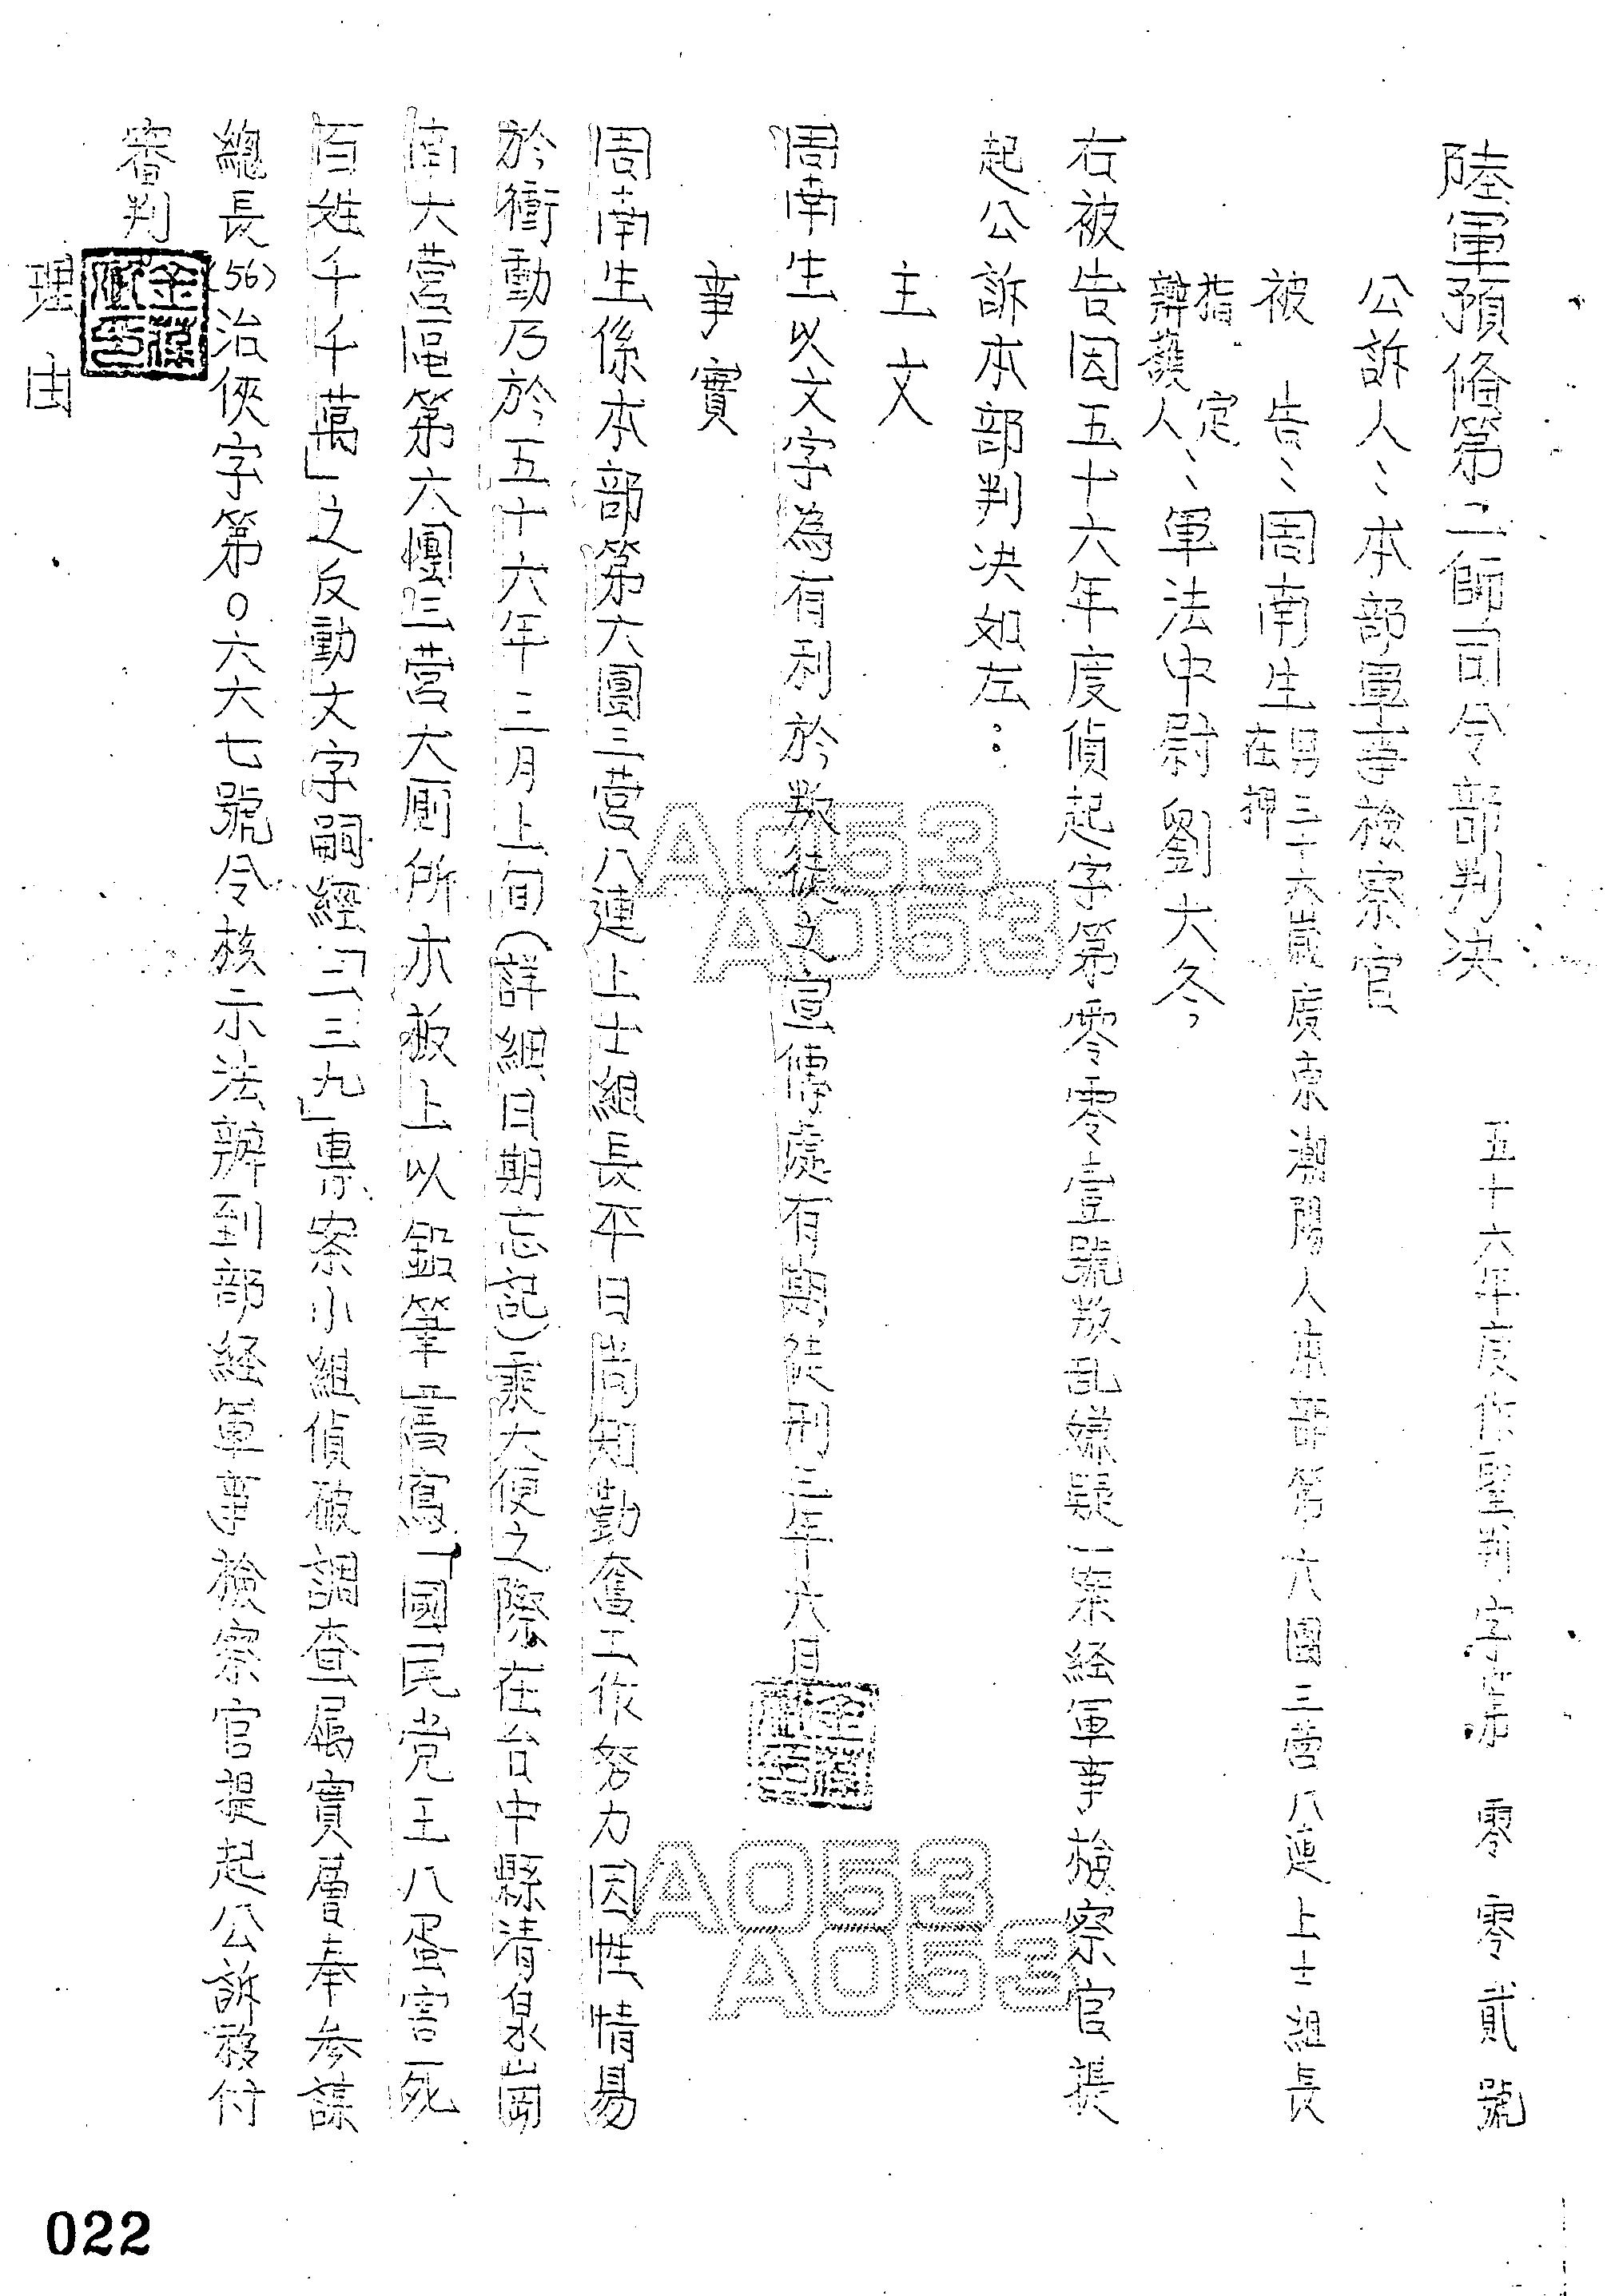 陸軍預備第二師司令部判決
五十六年度作聖判字第零零貳號
公訴人：本部軍事檢察官
被告：周南生 男三十六歲廣東潮陽人本部第六團三營八連上士組長 在押
指定辯護人：軍法中尉劉大冬
右被告因五十六年度偵起字第零零壹號叛乱嫌疑一案経軍事檢察官提
起公訴本部判決如左：
主文
周南生以文字為有利於叛徒之宣傳處有期徒刑三年六月
事實
周南生係本部第六團三營八連上士組長平日尚知勤奮工作努力因性情易
於衝動乃於五十六年三月上旬(詳細日期忘記)乘大便之際在台中縣清泉崗
南大營區第六團三營大厠所木板上以鉛筆書寫「國民党王八蛋害死
百姓千千萬」之反動文字嗣經「一三九」專案小組偵破調查屬實層奉參謀
總長(56)治俠字第０六六七號令核示法辦到部経軍事檢察官提起公訴移付
審判
理由
A053
A053
A053
A053
022